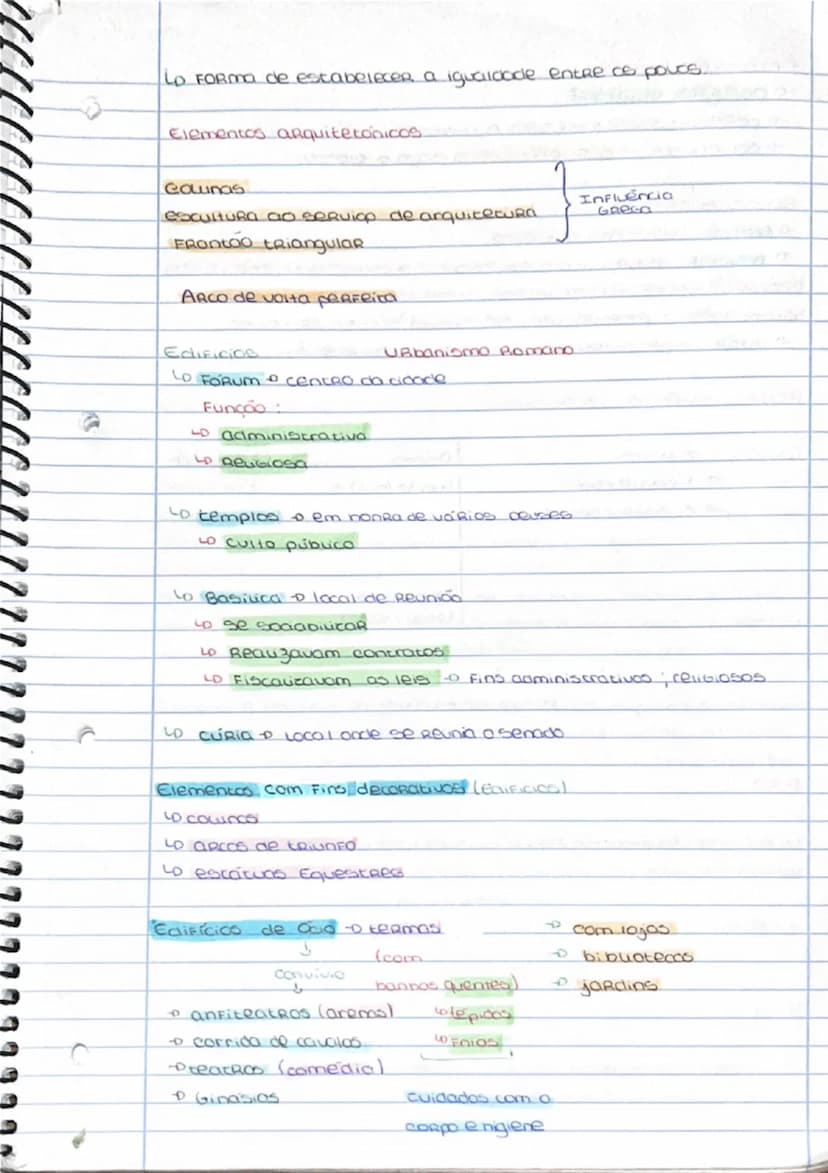 ↳ FORMA de estabelecer a igualdade entre os povos.
Elementos arquitetónicos
Colunas
escultura ao serviço de arquitetura
Frontão triangular
Influência
Grega
Arco de volta perfeita
Edifícios Urbanismo Romano
↳ Fórum → centro da cidade
Função :
↳ administrativa
↳ Religiosa
↳ templos → em honra de vários deuses
↳ Culto público
↳ Basílica → local de Reunião
↳ Se sociabilizar
↳ Realizavam contratos
↳ Fiscalizavam as leis → Fins administrativos ; religiosos
↳ CÚRIA → Local onde se Reunia o senado
Elementos com Fins decorativos (Edifícios)
↳ colunas
↳ arcos de triunfo
↳ estátuas Equestres
Edifícios de Ócio → termas → com lojas
↓ (com → bibliotecas
convívio banhos quentes) → jardins
↓
→ anfiteatros (arena) ↳ tépidos
→ corrida de cavalos ↳ Frios
→ teatros (comédia)
→ Ginásios cuidados com o
corpo e higiene